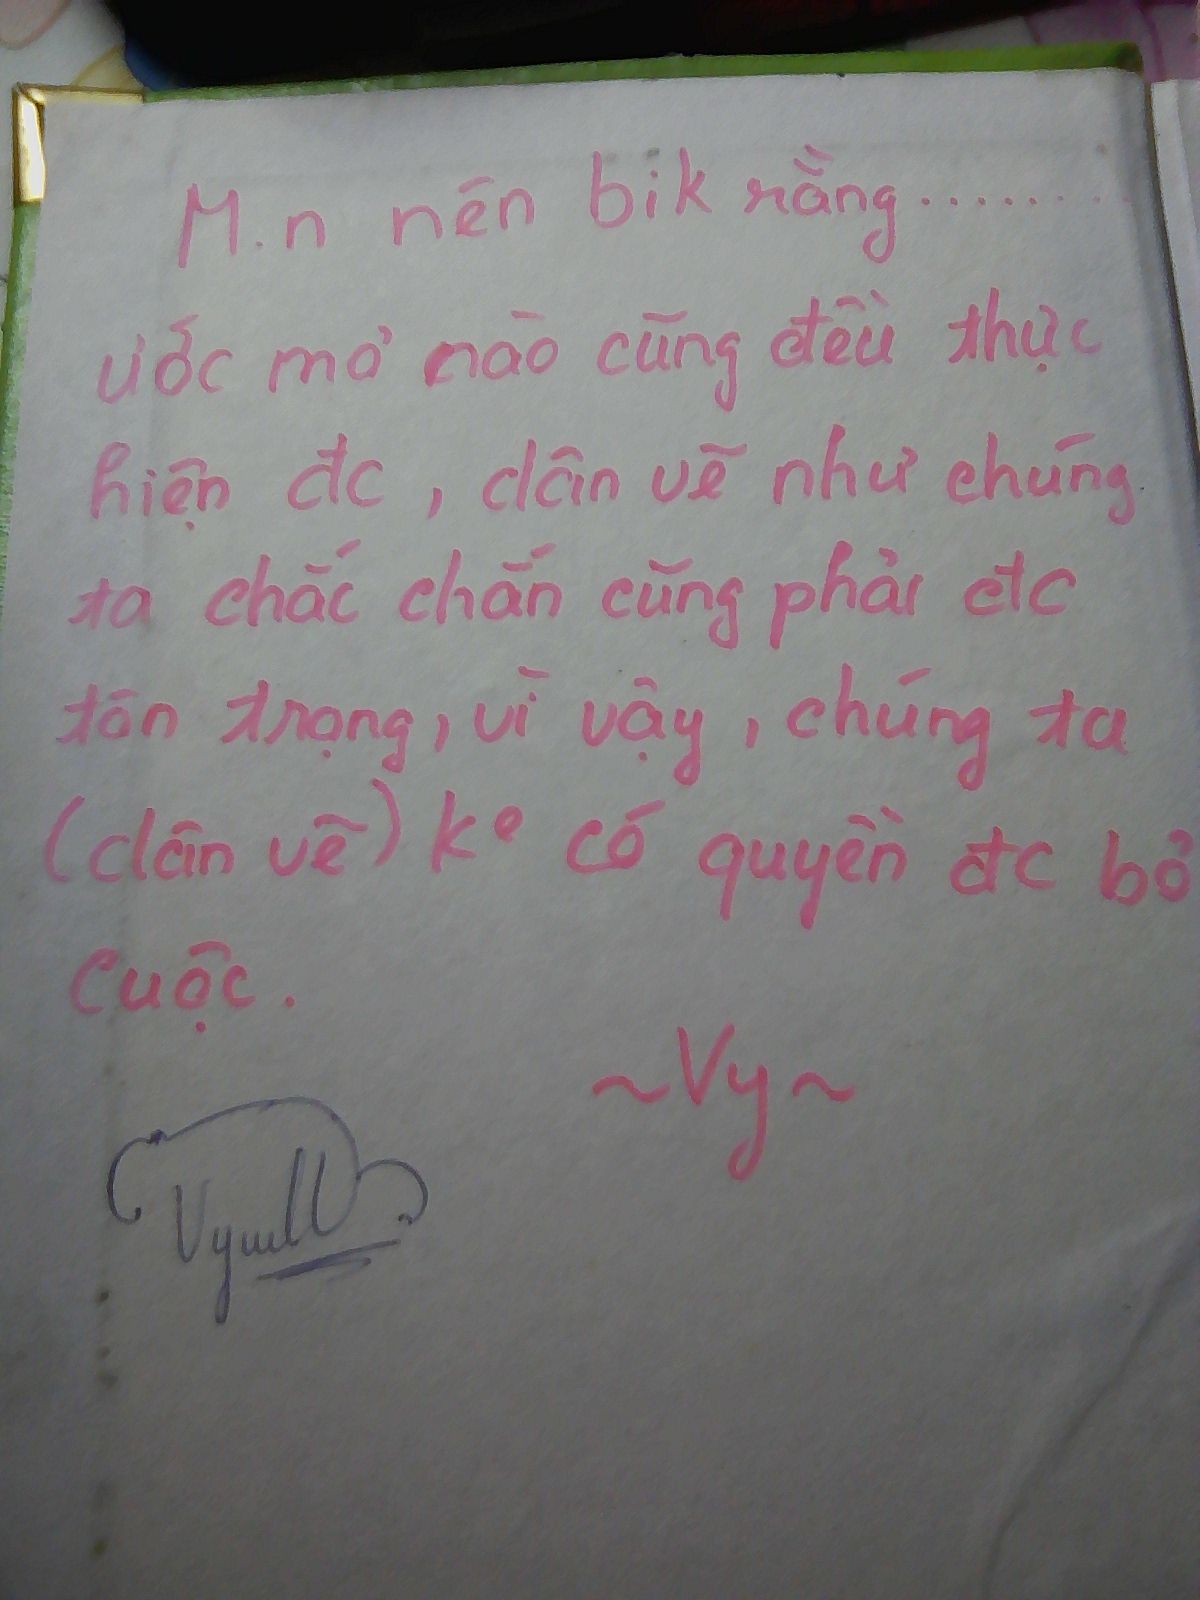 M.n nên bik rằng........
ước mơ nào cũng đều thực
hiện đc, dân vẽ như chúng
ta chắc chắn cũng phải đc
tôn trọng, vì vậy, chúng ta
(dân vẽ) ko có quyền đc bỏ
cuộc.
~Vy~